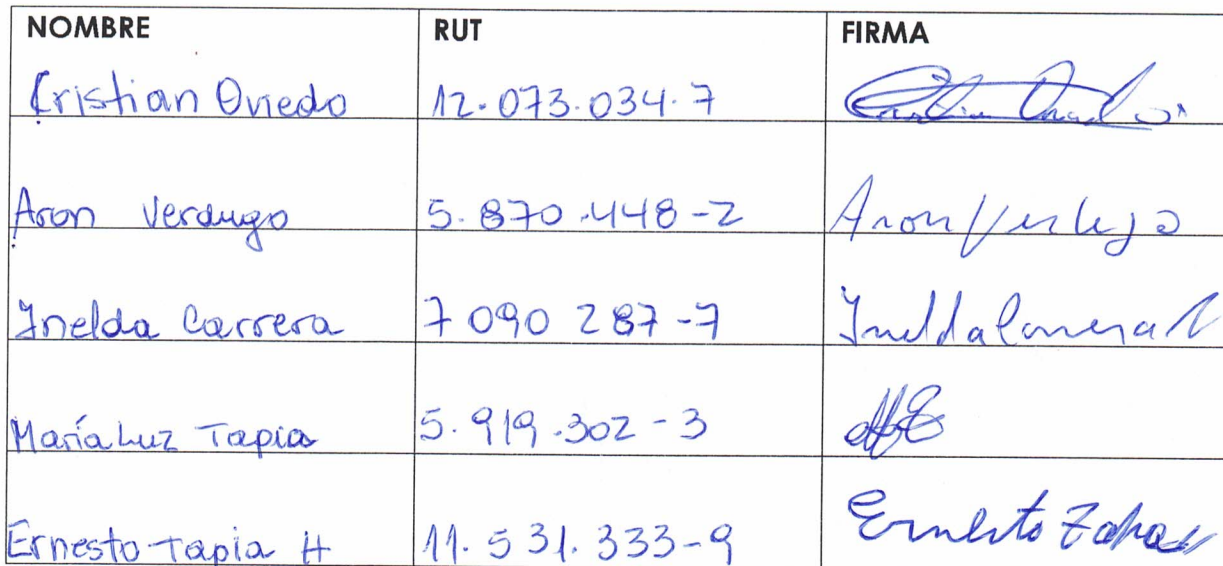 NOMBRE RUT FIRMA
Cristian Oviedo 12.073.034.7
Aron Verdugo 5.870.448-2 Aron Verdugo
Inelda Carrera 7 090 287-7 Inelda Carrera
María Luz Tapia 5.919.302-3
Ernesto Tapia H 11.531.333-9 Ernesto Tapia